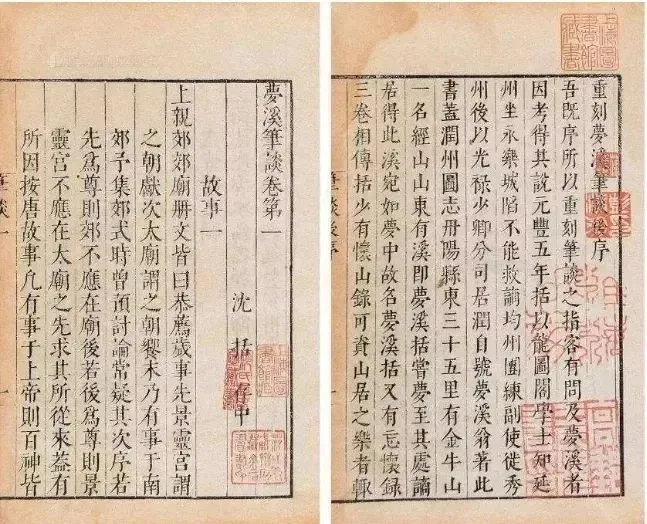 夢溪筆談卷第一
沈括存中
故事一
上親郊郊廟冊文皆曰恭薦歲事先景靈宮謂
之朝獻次太廟謂之朝饗末乃有事于南
郊予集郊式時曾預討論常疑其次序若
先爲尊則郊不應在廟後若後爲尊則景
靈宮不應在太廟之先求其所從來蓋有
所因按唐故事凡有事于上帝則百神皆
筆談一
一
上海圖書館藏書
重刻夢溪筆談後序
吾既序所以重刻筆談之指客有問及夢溪者
因考得其說元豐五年括以龍圖閣學士知延
州坐永樂城陷不能救謫均州團練副使徙秀
州後以光祿少卿分司居潤自號夢溪翁著此
書蓋潤州圖志丹陽縣東三十五里有金牛山
一名經山山東有溪即夢溪括嘗夢至其處謫
居得此溪宛如夢中故名夢溪括又有忘懷錄
三卷相傳括少有懷山錄可資山居之樂者輒
筆談後序
一